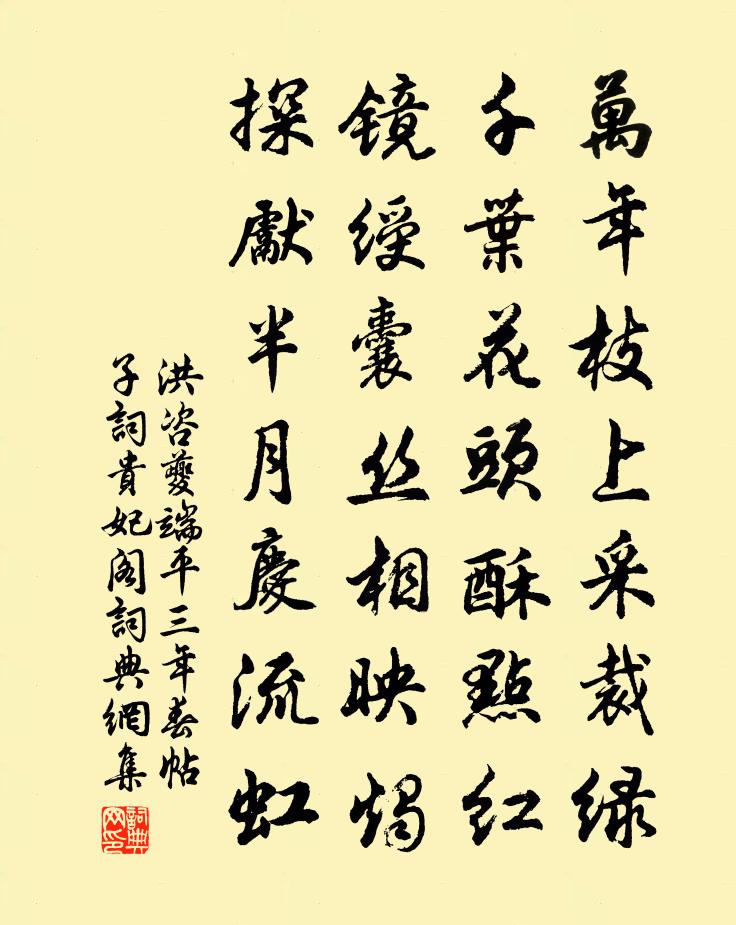 萬年枝上采裁绿
千葉花頭酥點红
镜绶囊丝相映燭
探獻半月慶流虹
洪咨夔端平三年春帖
子詞貴妃阁詞典網集
詞典
网印